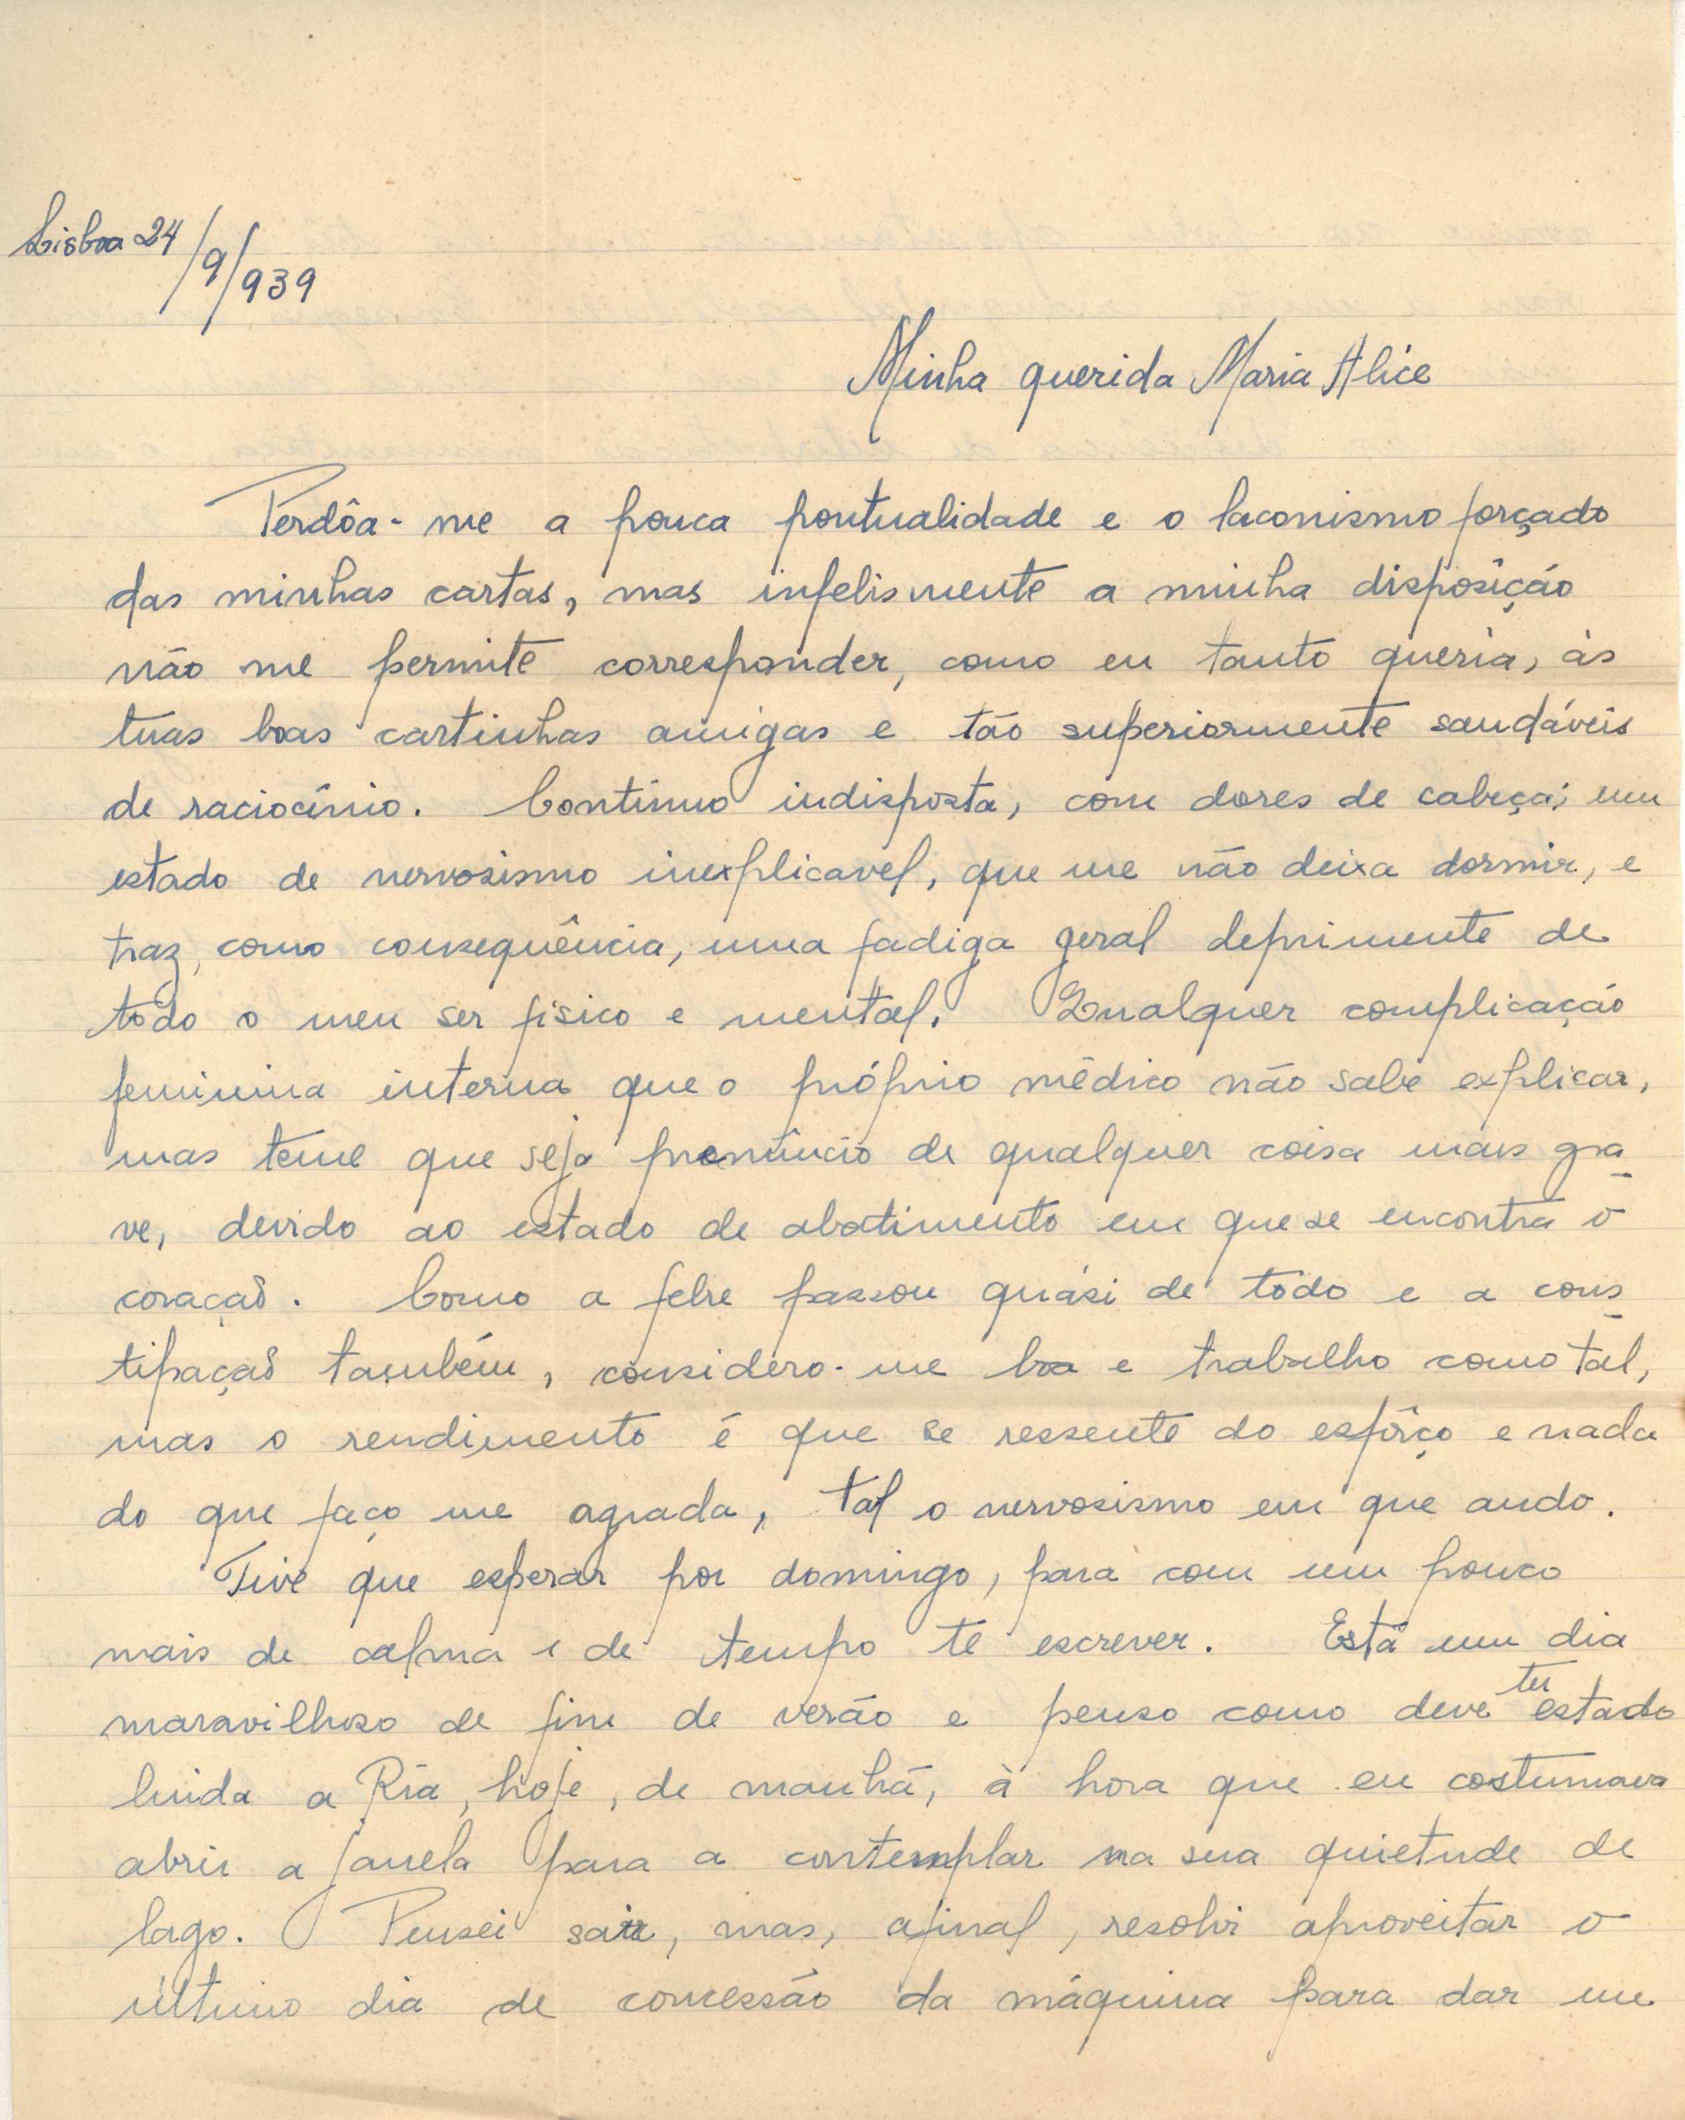 Lisboa 24/9/939
Minha querida Maria Alice
Perdôa-me a pouca pontualidade e o laconismo forçado
das minhas cartas, mas infelismente a minha disposição
não me permite corresponder, como eu tanto queria, às
tuas boas cartinhas amigas e tão superiormente saudáveis
de raciocínio. Contínuo indisposta, com dores de cabeça; um
estado de nervosismo inexplicavel, que me não deixa dormir, e
traz, como consequência, uma fadiga geral deprimente de
todo o meu ser fisico e mental. Qualquer complicação
feminina interna que o próprio médico não sabe explicar,
mas teme que seja prenúncio de qualquer coisa mais gra-
ve, devido ao estado de abatimento em que se encontra o
coração. Como a febre passou quási de todo e a cons-
tipação também, considero-me boa e trabalho como tal,
mas o rendimento é que se ressente do esfôrço e nada
do que faço me agrada, tal o nervosismo em que ando.
Tive que esperar por domingo, para com um pouco
mais de calma e de tempo te escrever. Está um dia
maravilhoso de fim de verão e penso como deve ter estado
linda a Ria, hoje, de manhã, à hora que eu costumava
abrir a janela para a contemplar na sua quietude de
lago. Pensei sair, mas, afinal, resolvi aproveitar o
último dia de concessão da máquina para dar um